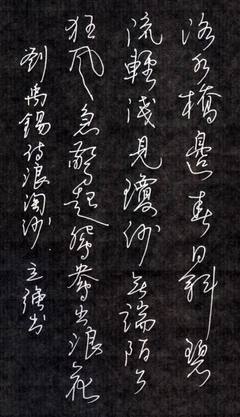 洛水橋邊春日斜碧
流輕淺見瓊砂無端陌上
狂風急驚起鴛鴦出浪花
劉禹錫詩浪淘沙 立強书